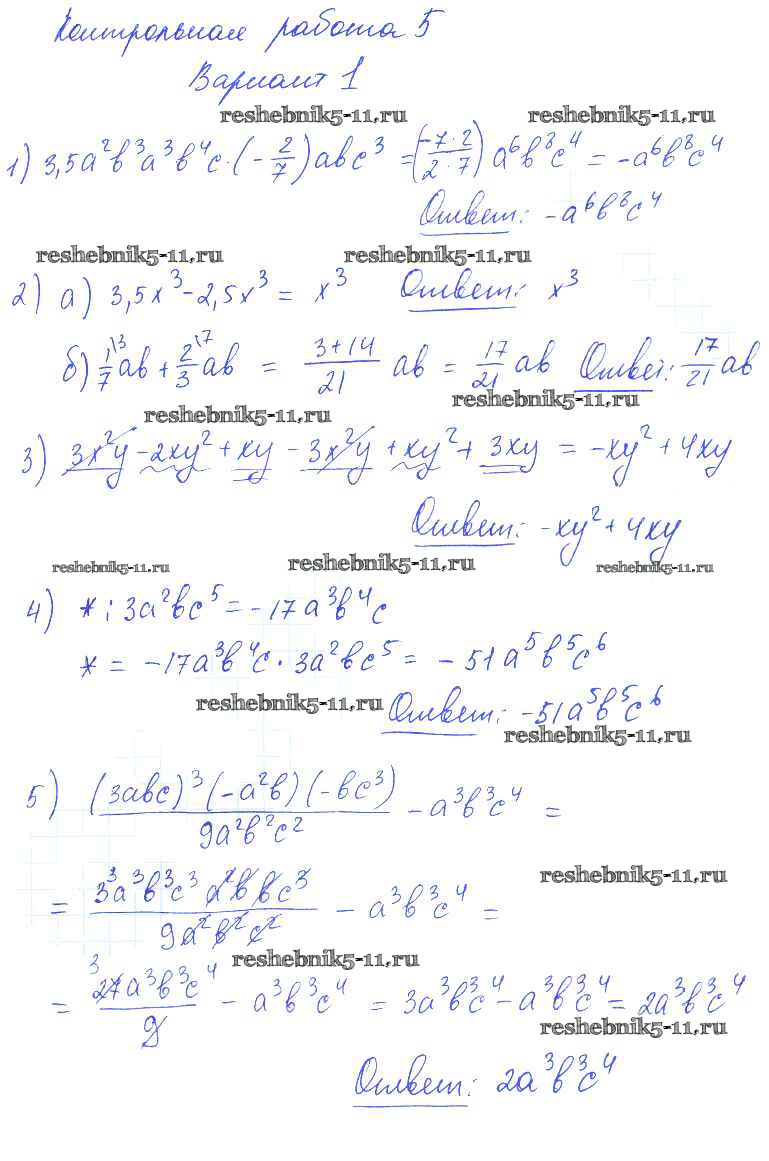 Контрольная работа 5
Вариант 1
reshebnik5-11.ru reshebnik5-11.ru
1) 3,5a²b³a³b⁴c·(-2/7)abc³ = (-7·2/2·7) a⁶b⁸c⁴ = -a⁶b⁸c⁴
Ответ: -a⁶b⁸c⁴
reshebnik5-11.ru reshebnik5-11.ru
2) а) 3,5x³-2,5x³ = x³ Ответ: x³
б) 1\3/7 ab + 2\7/3 ab = 3+14/21 ab = 17/21 ab Ответ: 17/21 ab
reshebnik5-11.ru
reshebnik5-11.ru
3) 3x²y - 2xy² + xy - 3x²y + xy² + 3xy = -xy² + 4xy
Ответ: -xy² + 4xy
reshebnik5-11.ru reshebnik5-11.ru reshebnik5-11.ru
4) * : 3a²bc⁵ = -17a³b⁴c
* = -17a³b⁴c · 3a²bc⁵ = -51a⁵b⁵c⁶
reshebnik5-11.ru Ответ: -51a⁵b⁵c⁶
reshebnik5-11.ru
5) (3abc)³(-a²b)(-bc³)/9a²b²c² - a³b³c⁴ =
reshebnik5-11.ru
= 3³a³b³c³a²bbc³/9a²b²c² - a³b³c⁴ =
reshebnik5-11.ru
= 3 27a³b³c⁴/9 - a³b³c⁴ = 3a³b³c⁴ - a³b³c⁴ = 2a³b³c⁴
reshebnik5-11.ru
Ответ: 2a³b³c⁴